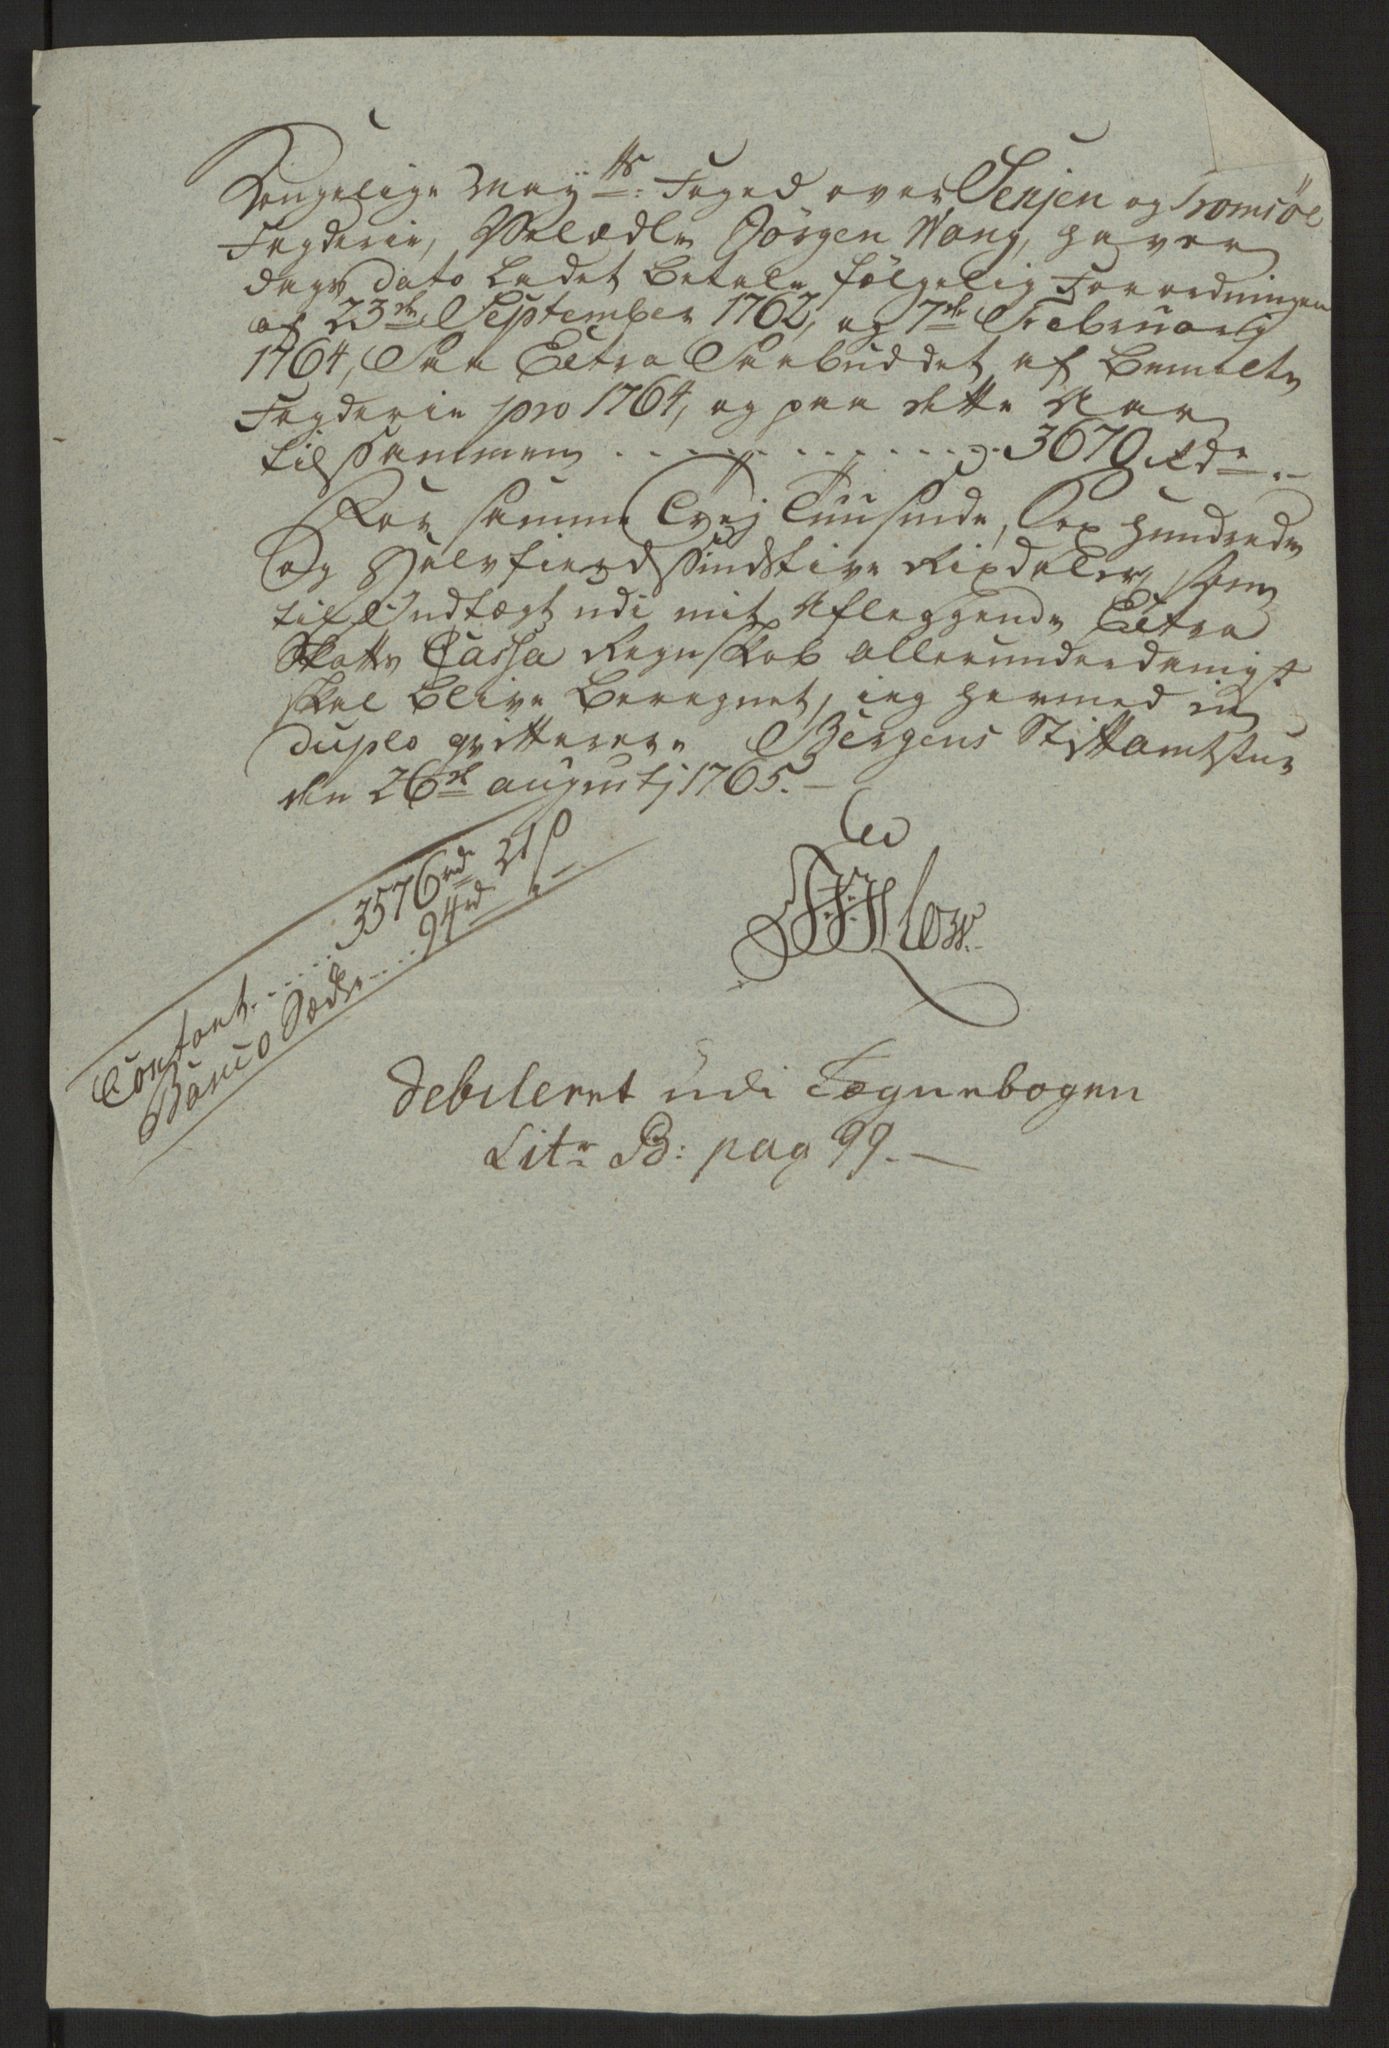 Kongelige May:ts Foged over Senjen og Tromsöe
Fogderie, Velædle Jörgen Wang, haver
dags dato ladet betale fölgelig Forordningen
af 23de September 1762, og 7de Februarij
1764, Extra Paabuddet af bemelte
Fogderie pro 1764, og paa dette Aar
tilsammen . . . . . . . . . . 3670 Rdr.-
For samme Trej Tuusinde, Sex hundrede
og Halvfierdsindstive Rixdaler, som
til Indtægt udi mit aflæggende Extra
Skatts Cassa Regnskab allerunderdanigst
skal blive beregnet, ieg hermed in
duplo qvitterer. Bergens Stiftamtstue
den 26de augustj 1765.-
Contant . . . . . 3576rd 21s
Banco Sedler . . . . 94rd - -
Debiteret udi Tegnebogen
Litr B: pag 99.-